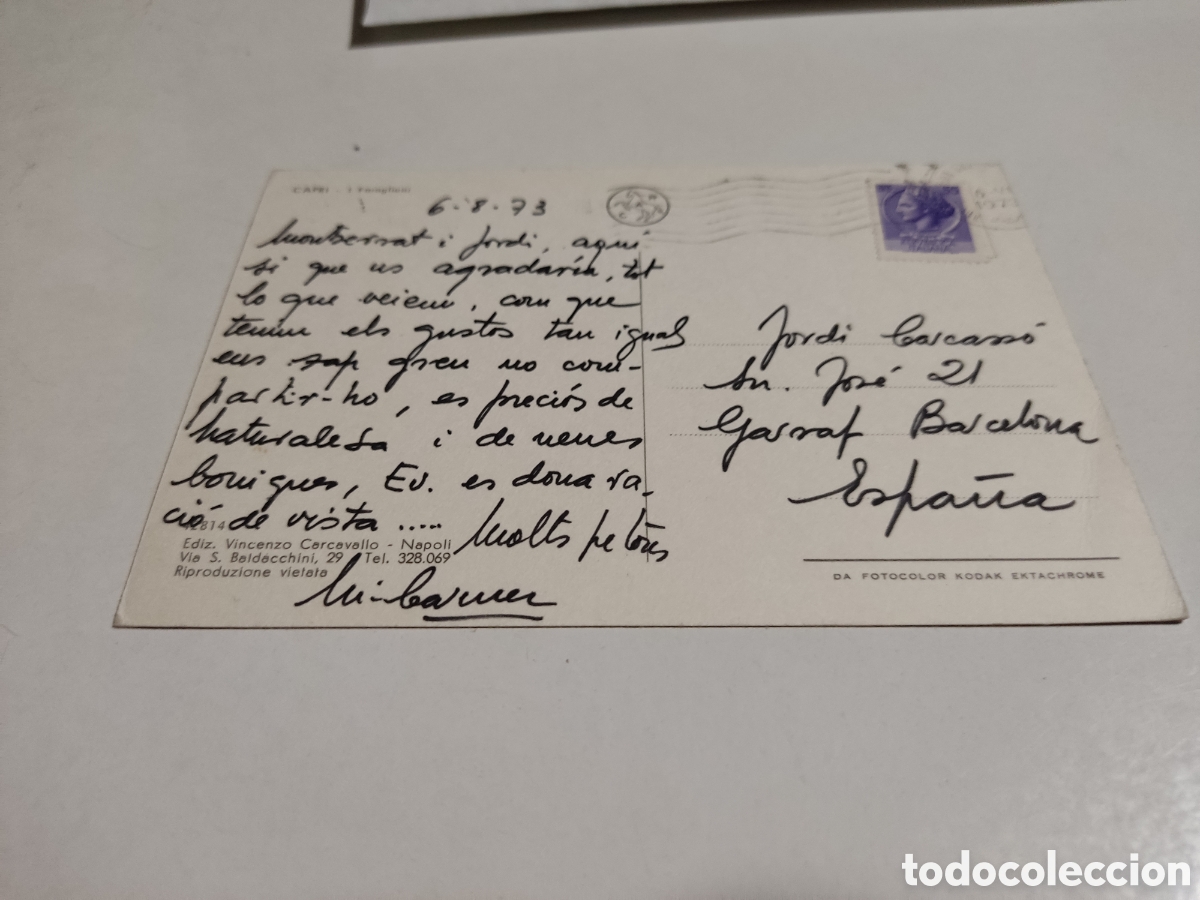 CAPRI - I Faraglioni
6-8-73
Montserrat i Jordi, aquí
si que us agradaria, tot
lo que veiem, com que
tenim els gustos tan iguals
ens sap greu no com-
partir-ho, es preciós de
naturalesa i de nenes
boniques, Ev. es dona ra-
ció de vista .....
Molts petons
M-Carmen
42814
Ediz. Vincenzo Carcavallo - Napoli
Via S. Baldacchini, 29 Tel. 328.069
Riproduzione vietata
Jordi Carcassó
Sn. José 21
Garraf Barcelona
España
DA FOTOCOLOR KODAK EKTACHROME
todocoleccion